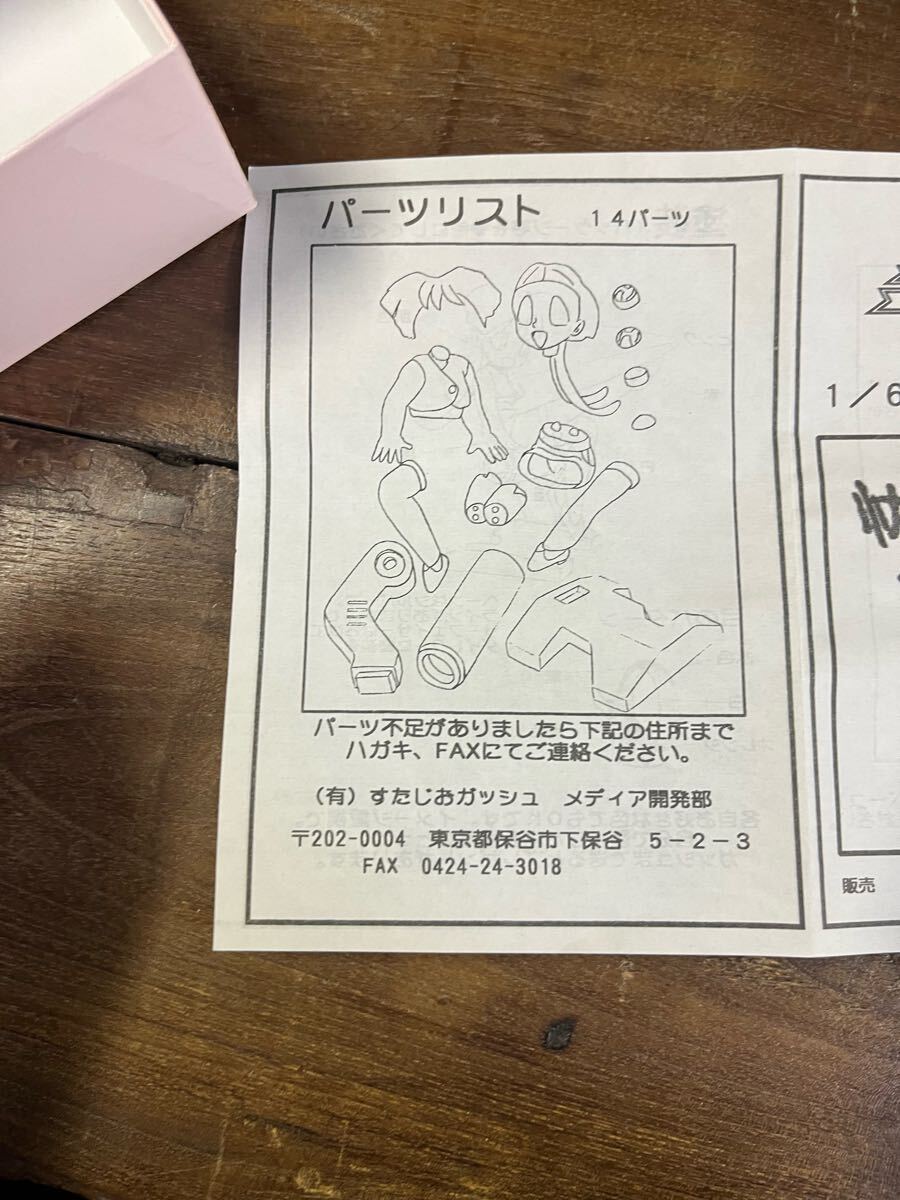 パーツリスト 14パーツ
パーツ不足がありましたら下記の住所まで
ハガキ、FAXにてご連絡ください。
(有)すたじおガッシュ メディア開発部
〒202-0004 東京都保谷市下保谷 5-2-3
FAX 0424-24-3018
1/6
販売